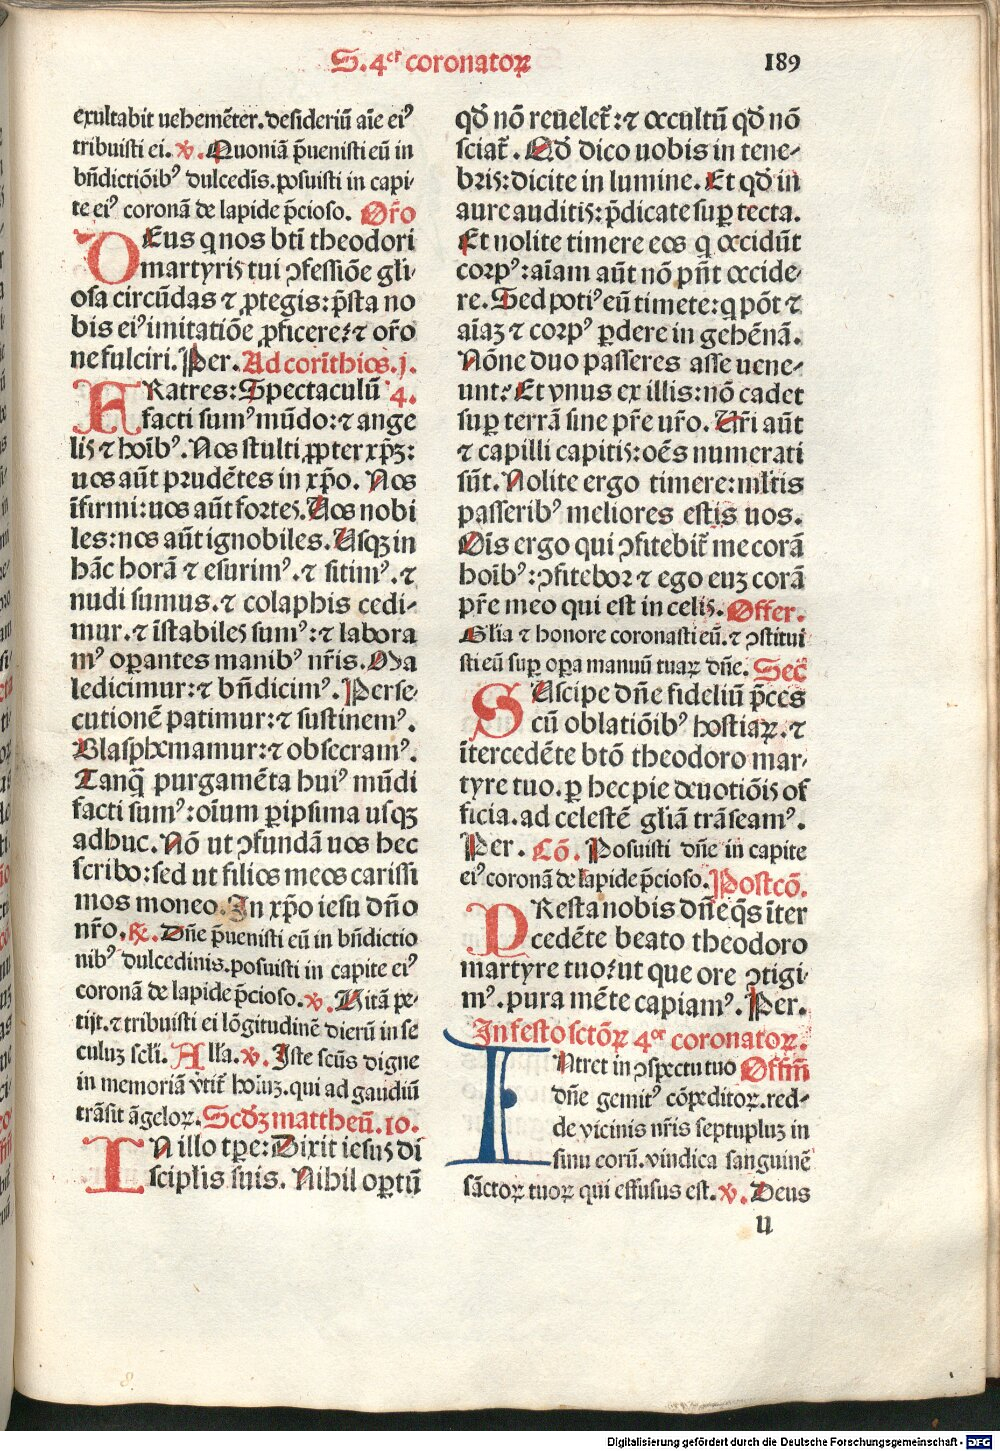 S. 4cr̄ coronatoꝝ
189
exultabit uehemēter. desideriū aīe ei⁹
tribuisti ei. ℣. Quoniā p̄uenisti eū in
bn̄dictiōib⁹ dulcedīs. posuisti in capi-
te ei⁹ coronā de lapide p̄cioso. Or̄o
DEus q nos bt̄i theodori
martyris tui ꝯfessiōe gl̄i-
osa circūdas ⁊ ꝓtegis: p̄sta no
bis ei⁹ imitatiōe ꝓficere: ⁊ or̄o
ne fulciri. Per. Ad corīthios. j.
FRatres: Spectaculū 4.
facti sum⁹ mūdo: ⁊ ange
lis ⁊ hoīb⁹. Nos stulti ꝓpter xp̄ꝫ:
uos aūt prudētes in xp̄o. Nos
īfirmi: uos aūt fortes. Uos nobi
les: nos aūt ignobiles. Usqꝫ in
hāc horā ⁊ esurim⁹. ⁊ sitim⁹. ⁊
nudi sumus. ⁊ colaphis cedi-
mur. ⁊ īstabiles sum⁹: ⁊ labora
m⁹ oꝑantes manib⁹ nr̄is. Ma
ledicimur: ⁊ bn̄dicim⁹. Perse-
cutionē patimur: ⁊ sustinem⁹.
Blasphemamur: ⁊ obsecram⁹.
Tanqꝫ purgamēta hui⁹ mūdi
facti sum⁹: oīum ꝑipsima usqꝫ
adhuc. Nō ut ꝯfundā uos hec
scribo: sed ut filios meos carissi
mos moneo. In xp̄o iesu dn̄o
nr̄o. ℟. Dn̄e p̄uenisti eū in bn̄dictio
nib⁹ dulcedinis. posuisti in capite ei⁹
coronā de lapide p̄cioso. ℣. Uitā pe-
tijt. ⁊ tribuisti ei lōgitudinē dierū in se
culuꝫ scl̄i. Alla. ℣. Iste scūs digne
in memoriā v̄tit̄ hoīuꝫ. qui ad gaudiū
trāsit āgeloꝝ. Scd̄ꝫ mattheū. 10.
IN illo tp̄e: Dixit iesus di
scipl̄is suis. Nihil oꝑtū
qd̄ nō reuelet̄: ⁊ occultū qd̄ nō
sciat̄. Qd̄ dico uobis in tene-
bris: dicite in lumine. Et qd̄ in
aure auditis: p̄dicate suꝑ tecta.
Et nolite timere eos q occidūt
corp⁹: aīam aūt nō pn̄t occide-
re. Sed poti⁹ eū timete: q pōt ⁊
aīaꝫ ⁊ corp⁹ ꝑdere in gehēnā.
Nōne duo passeres asse uene-
unt: Et vnus ex illis: nō cadet
suꝑ terrā sine pr̄e ur̄o. Ur̄i aūt
⁊ capilli capitis: oēs numerati
sūt. Nolite ergo timere: ml̄tis
passerib⁹ meliores estis uos.
Oīs ergo qui ꝯfitebit̄ me corā
hoīb⁹: ꝯfitebor ⁊ ego euꝫ corā
pr̄e meo qui est in celis. Offer.
Gl̄ia ⁊ honore coronasti eū. ⁊ ꝯstitui
sti eū suꝑ oꝑa manuū tuaꝝ dn̄e. Sec̄
SUscipe dn̄e fideliū p̄ces
cū oblatiōib⁹ hostiaꝝ. ⁊
ītercedēte btō theodoro mar-
tyre tuo. ꝑ hec pie deuotiōis of
ficia. ad celestē gl̄iā trāseam⁹.
Per. Cō. Posuisti dn̄e in capite
ei⁹ coronā de lapide p̄cioso. Postcō.
PResta nobis dn̄e q̄s īter
cedēte beato theodoro
martyre tuo: ut que ore ꝯtigi-
m⁹. pura mēte capiam⁹. Per.
In festo sctōꝝ 4or coronatoꝝ.
INtret in ꝯspectu tuo Offm̄
dn̄e gemit⁹ cōpeditoꝝ. red-
de vicinis nr̄is septupluꝫ in
sinu eorū. vindica sanguinē
sāctoꝝ tuoꝝ qui effusus est. ℣. Deus
u
Digitalisierung gefördert durch die Deutsche Forschungsgemeinschaft - DFG